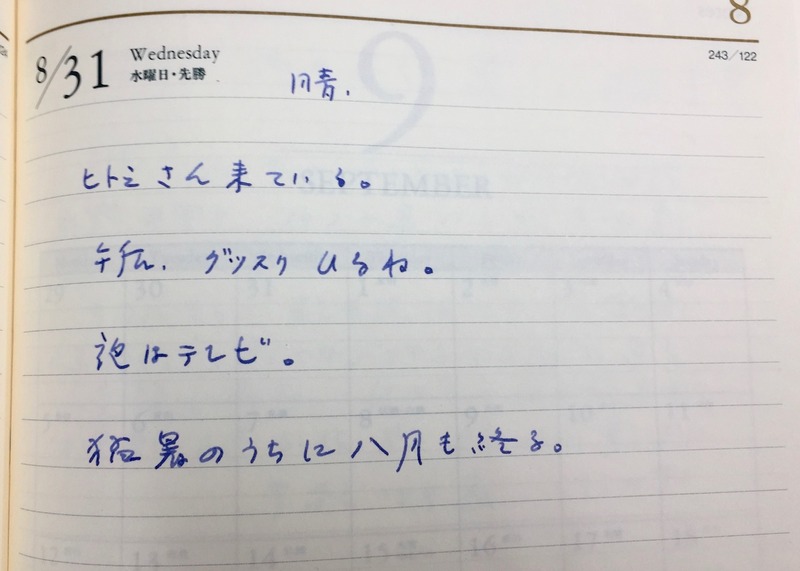 8
8/31 Wednesday 243/122
水曜日・先勝 晴.
ヒトミさん来ている。
午后、グッスリひるね。
夜はテレビ。
猛暑のうちに八月も終る。